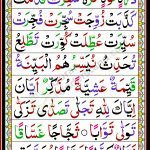 كَذَّبَتْ زُوِّجَتْ سُجِّرَتْ فُجِّرَتْ
سُيِّرَتْ عُطِّلَتْ كُوِّرَتْ تَطَّلِعُ
تُحَدِّثُ نُيَسِّرُ هُمُ الْبَيِّنَةُ
قَيِّمَةٌ عَشِيَّةً مُذَكِّرٌ اِيَّانَ
اِيَّاكَ تَجَلّٰى تَصَدّٰى تَزَكّٰى
تَوَلّٰى تَوَّابًا ثَجَّاجًا غَسَّاقًا